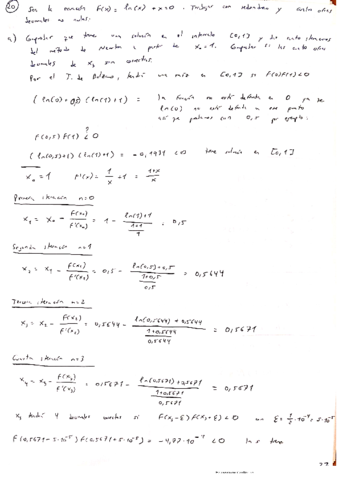 20) Sea la ecuación F(x) = ln(x) + x = 0. Trabajar con redondeo y cuatro cifras
decimales no nulas:
a) Comprobar que tiene una solución en el intervalo [0,1] y las cuatro iteraciones
del método de Newton a partir de x₀ = 1. Comprobar si las cuatro cifras
decimales de x₃ son correctas.
Por el T. de Bolzano, tendrá una raíz en [0,1] si F(0)F(1) < 0
(ln(0) + 0) (ln(1) + 1) = la función no está definida en 0 ya que
ln(0) no está definido en ese punto
así que probamos con 0,5 por ejemplo:
F(0,5) F(1) < 0
?
(ln(0,5)+0,5) (ln(1)+1) = -0,1931 < 0 tiene solución en [0,1]
x₀ = 1 F'(x) = 1/x + 1 = (1+x)/x
Primera iteración n=0
x₁ = x₀ - F(x₀)/F'(x₀) = 1 - (ln(1)+1)/((1+1)/1) = 0,5
Segunda iteración n=1
x₂ = x₁ - F(x₁)/F'(x₁) = 0,5 - (ln(0,5)+0,5)/((1+0,5)/0,5) = 0,5644
Tercera iteración n=2
x₃ = x₂ - F(x₂)/F'(x₂) = 0,5644 - (ln(0,5644)+0,5644)/((1+0,5644)/0,5644) = 0,5671
Cuarta iteración n=3
x₄ = x₃ - F(x₃)/F'(x₃) = 0,5671 - (ln(0,5671)+0,5671)/((1+0,5671)/0,5671) = 0,5671
x₃ tendrá 4 decimales correctos si F(x₃-ξ) F(x₃+ξ) < 0 con ξ = 1/2 · 10⁻⁴ = 5·10⁻⁵
F(0,5671 - 5·10⁻⁵) F(0,5671 + 5·10⁻⁵) = < 0